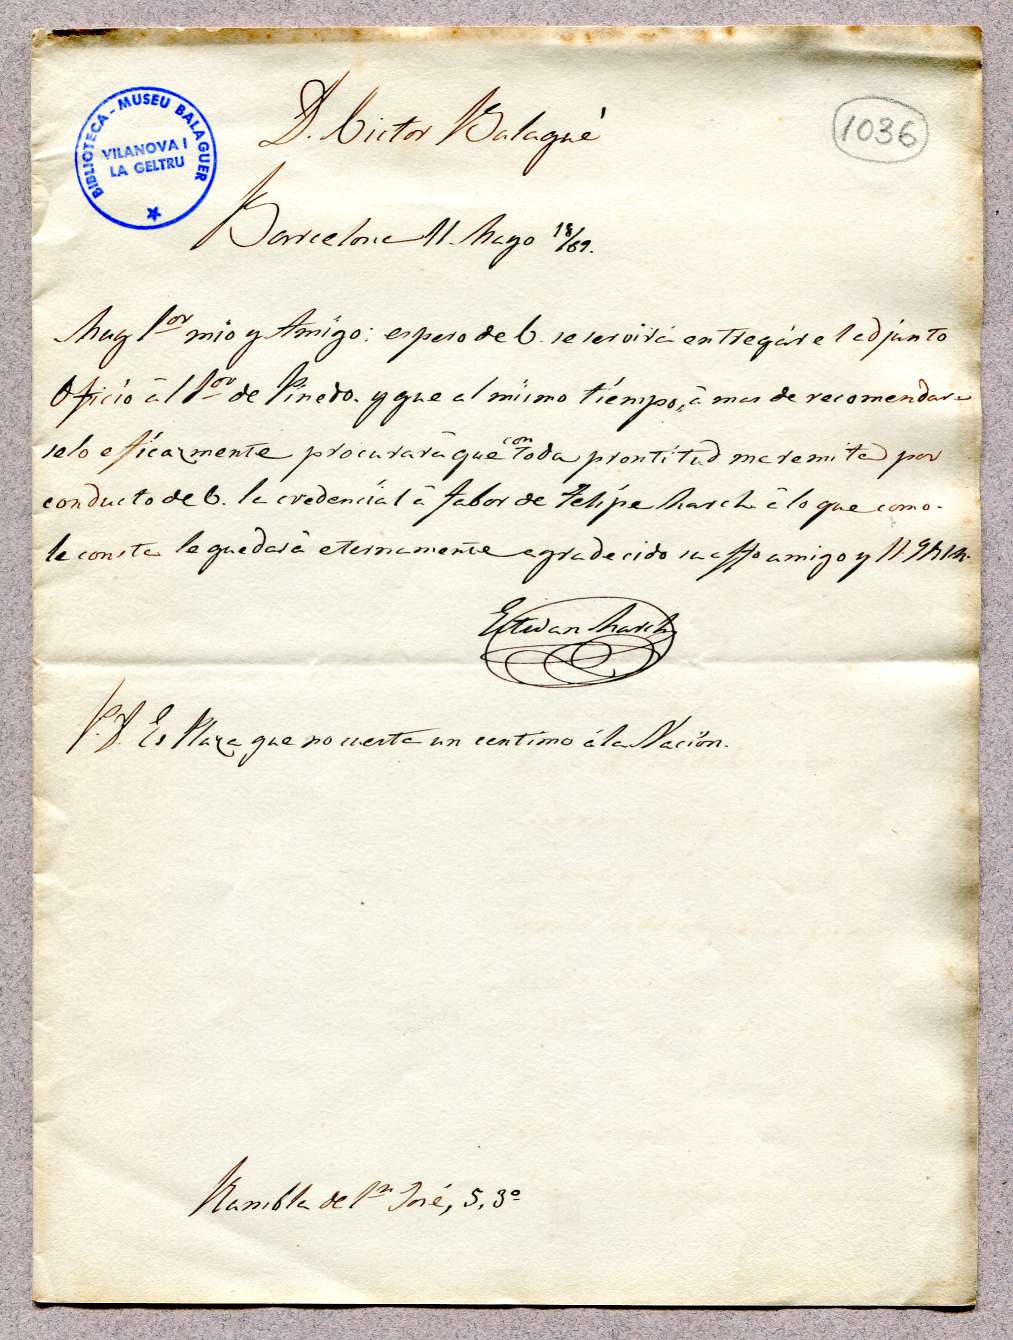 BIBLIOTECA - MUSEU BALAGUER
VILANOVA I
LA GELTRU
1036
D. Victor Balagué
Barcelona 11. Mayo 18/69.
Muy Sor mio y Amigo: espero de V. se servirá entregár el adjunto
Oficio ál Sor de Pinedo. y que al mismo tiempo, á mas de recomendar
selo eficazmente procurará que con toda prontitud me remita por
conducto de V. la credencial á fabor de Felipe March á lo que como.
le consta le quedará eternamente agradecido su affo amigo y
Estevan March
P.D. Es Plaza que no cuesta un centimo á la Nación.
Rambla de Sn José, 5, 3º